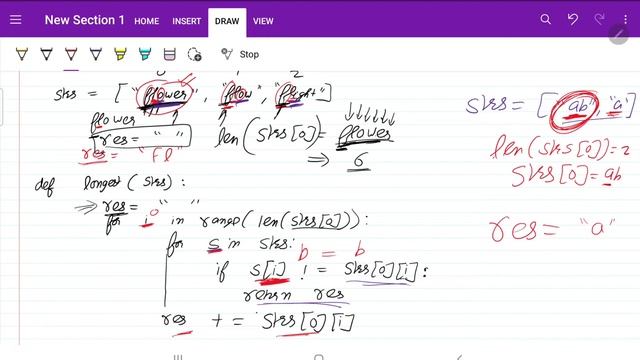 New Section 1 HOME INSERT DRAW VIEW
Stop
0 1 2
strs = ["flower", "flow", "flight"]
flower
res = " "
len(strs[0]) = flower
res = "Fl"
⇒ 6
def longest(strs):
⇒ res = " "
for i in range(len(strs[0])):
0
for s in strs:
b = b
if s[i] != strs[0][i]:
return res
res += strs[0][i]
strs = ["ab", "a"]
len(strs[0])=2
strs[0]=ab
res = "a"